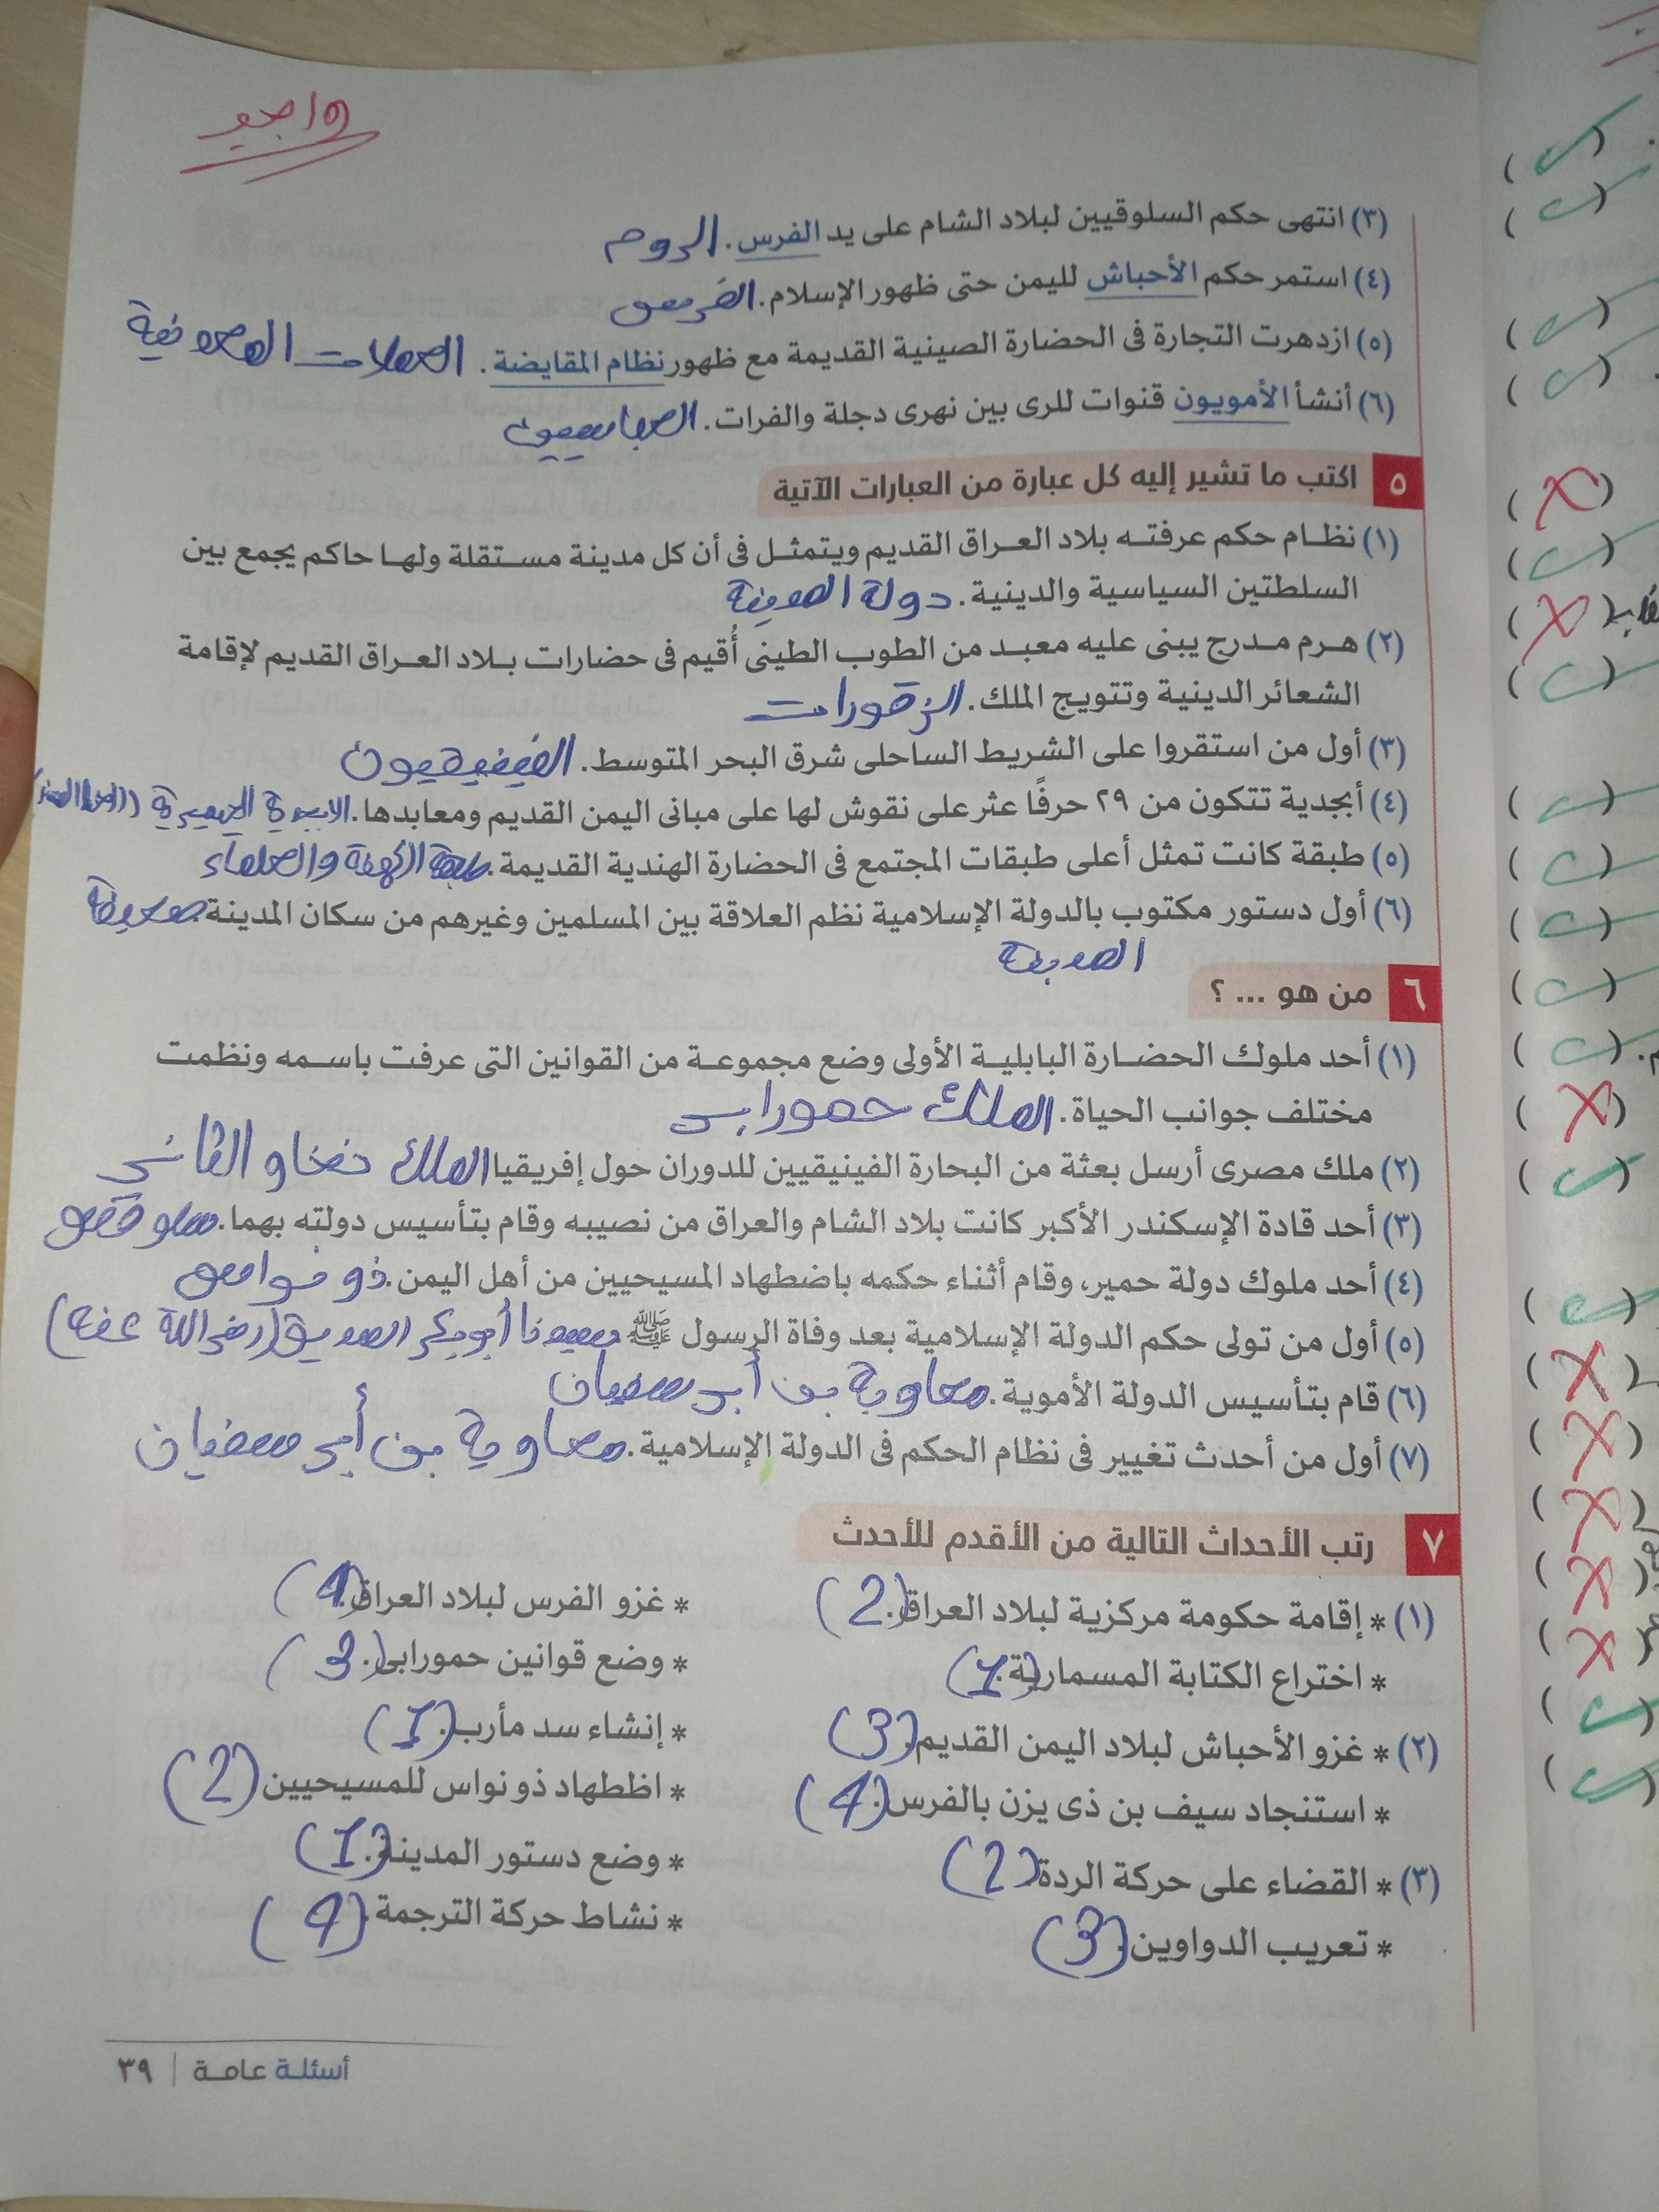 واجب
(٣) انتهى حكم السلوقيين لبلاد الشام على يد الفرس. الروم
(٤) استمر حكم الأحباش لليمن حتى ظهور الإسلام. الفرس
(٥) ازدهرت التجارة فى الحضارة الصينية القديمة مع ظهور نظام المقايضة. العملات المعدنية
(٦) أنشأ الأمويون قنوات للرى بين نهرى دجلة والفرات. العباسيون
٥ اكتب ما تشير إليه كل عبارة من العبارات الآتية
(١) نظام حكم عرفته بلاد العراق القديم ويتمثل فى أن كل مدينة مستقلة ولها حاكم يجمع بين
السلطتين السياسية والدينية. دولة المدينة
(٢) هرم مدرج يبنى عليه معبد من الطوب الطينى أُقيم فى حضارات بلاد العراق القديم لإقامة
الشعائر الدينية وتتويج الملك. الزقورات
(٣) أول من استقروا على الشريط الساحلى شرق البحر المتوسط. الفينيقيون
(٤) أبجدية تتكون من ٢٩ حرفًا عثر على نقوش لها على مبانى اليمن القديم ومعابدها. الابجدية الحميرية
(٥) طبقة كانت تمثل أعلى طبقات المجتمع فى الحضارة الهندية القديمة. طبقة الكهنة والعلماء
(٦) أول دستور مكتوب بالدولة الإسلامية نظم العلاقة بين المسلمين وغيرهم من سكان المدينة. صحيفة
المدينة
٦ من هو ... ؟
(١) أحد ملوك الحضارة البابلية الأولى وضع مجموعة من القوانين التى عرفت باسمه ونظمت
مختلف جوانب الحياة. الملك حمورابى
(٢) ملك مصرى أرسل بعثة من البحارة الفينيقيين للدوران حول إفريقيا الملك نخاو الثانى
(٣) أحد قادة الإسكندر الأكبر كانت بلاد الشام والعراق من نصيبه وقام بتأسيس دولته بهما. سلوقس
(٤) أحد ملوك دولة حمير، وقام أثناء حكمه باضطهاد المسيحيين من أهل اليمن. ذو نواس
(٥) أول من تولى حكم الدولة الإسلامية بعد وفاة الرسول ﷺ سيدنا أبو بكر الصديق (رضى الله عنه)
(٦) قام بتأسيس الدولة الأموية. معاوية بن أبى سفيان
(٧) أول من أحدث تغيير فى نظام الحكم فى الدولة الإسلامية. معاوية بن أبى سفيان
٧ رتب الأحداث التالية من الأقدم للأحدث
(١) * إقامة حكومة مركزية لبلاد العراق. (2) * غزو الفرس لبلاد العراق. (4)
* اختراع الكتابة المسمارية. (1) * وضع قوانين حمورابى. (3)
(٢) * غزو الأحباش لبلاد اليمن القديم. (3) * إنشاء سد مأرب. (1)
* استنجاد سيف بن ذى يزن بالفرس. (4) * اظطهاد ذو نواس للمسيحيين (2)
(٣) * القضاء على حركة الردة (2) * وضع دستور المدينة. (1)
* تعريب الدواوين. (3) * نشاط حركة الترجمة. (4)
أسئلة عامة | ٣٩